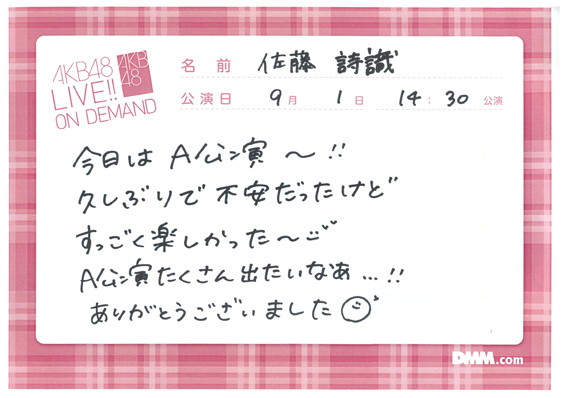 AKB48
LIVE!!
ON DEMAND
AKB
48
名 前 佐藤 詩識
公演日 9月 1日 14:30 公演
今日は A公演 〜!!
久しぶりで 不安だったけど
すっごく楽しかった〜
A公演たくさん出たいなあ...!!
ありがとうございました
DMM.com